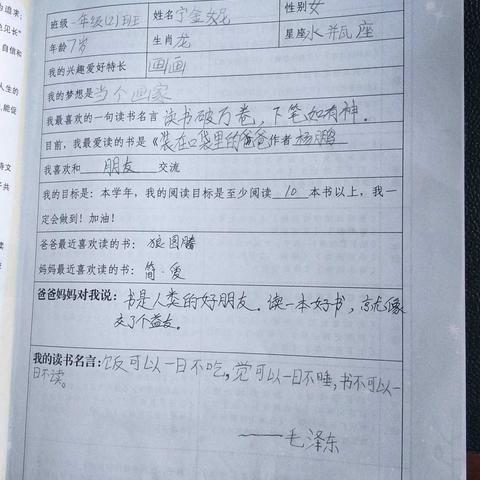 为追求；
见长”
自信和
人生的
，能促
诗文
子共
读
班级一年级(2)班班 姓名宁金妮 性别女
年龄7岁 生肖龙 星座水瓶座
我的兴趣爱好特长 画画
我的梦想是当个画家
我最喜欢的一句读书名言读书破万卷，下笔如有神．
目前，我最爱读的书是《装在口袋里的爸爸》作者杨鹏
我喜欢和 朋友 交流
我的目标是：本学年，我的阅读目标是至少阅读 10 本书以上，我一
定会做到！加油！
爸爸最近喜欢读的书： 狼图腾
妈妈最近喜欢读的书： 简·爱
爸爸妈妈对我说：书是人类的好朋友．读一本好书，就像
交了个益友．
我的读书名言：饭可以一日不吃，觉可以一日不睡，书不可以一
日不读。
——毛泽东